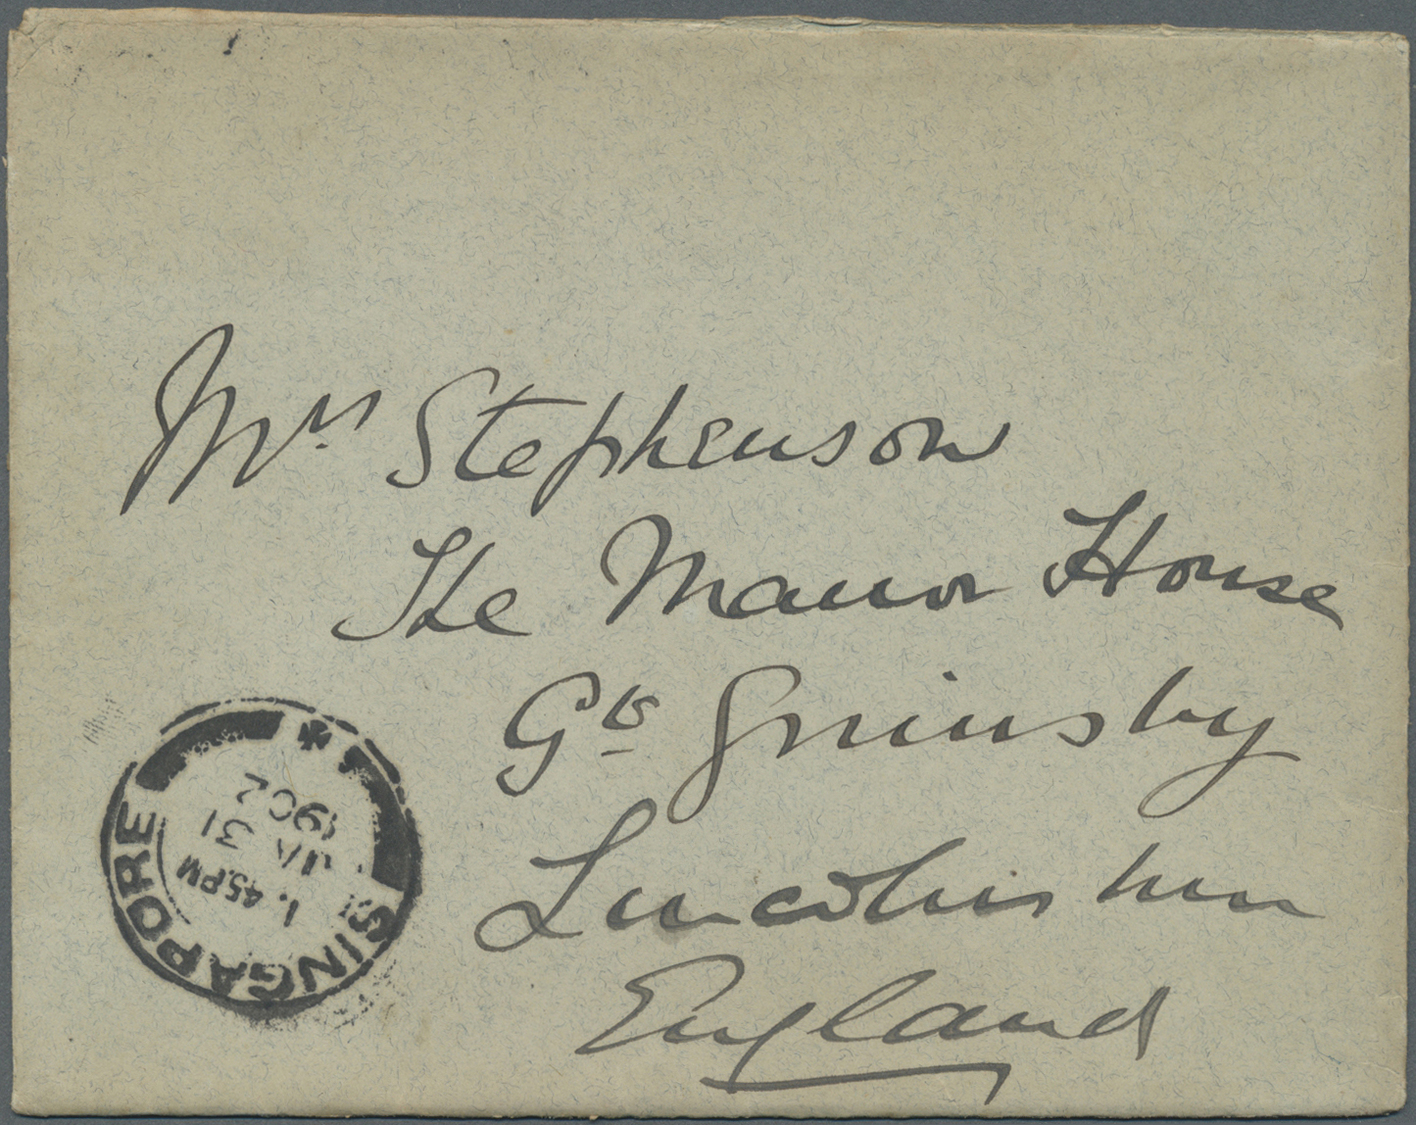 Mrs Stephenson
The Manor House
Gt Grimsby
Lincolnshire
England
SINGAPORE
1.45PM
JA 31
1902